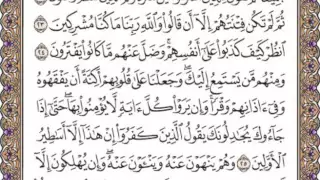 ثُمَّ لَمْ تَكُن فِتْنَتُهُمْ إِلَّآ أَن قَالُوا۟ وَٱللَّهِ رَبِّنَا مَا كُنَّا مُشْرِكِينَ ٢٣
ٱنظُرْ كَيْفَ كَذَبُوا۟ عَلَىٰٓ أَنفُسِهِمْ وَضَلَّ عَنْهُم مَّا كَانُوا۟ يَفْتَرُونَ ٢٤
وَمِنْهُم مَّن يَسْتَمِعُ إِلَيْكَ وَجَعَلْنَا عَلَىٰ قُلُوبِهِمْ أَكِنَّةً أَن يَفْقَهُوهُ
وَفِىٓ ءَاذَانِهِمْ وَقْرًا وَإِن يَرَوْا۟ كُلَّ ءَايَةٍ لَّا يُؤْمِنُوا۟ بِهَا حَتَّىٰٓ إِذَا
جَآءُوكَ يُجَٰدِلُونَكَ يَقُولُ ٱلَّذِينَ كَفَرُوٓا۟ إِنْ هَٰذَآ إِلَّآ أَسَٰطِيرُ
ٱلْأَوَّلِينَ ٢٥ وَهُمْ يَنْهَوْنَ عَنْهُ وَيَنْـَٔوْنَ عَنْهُ وَإِن يُهْلِكُونَ إِلَّآ